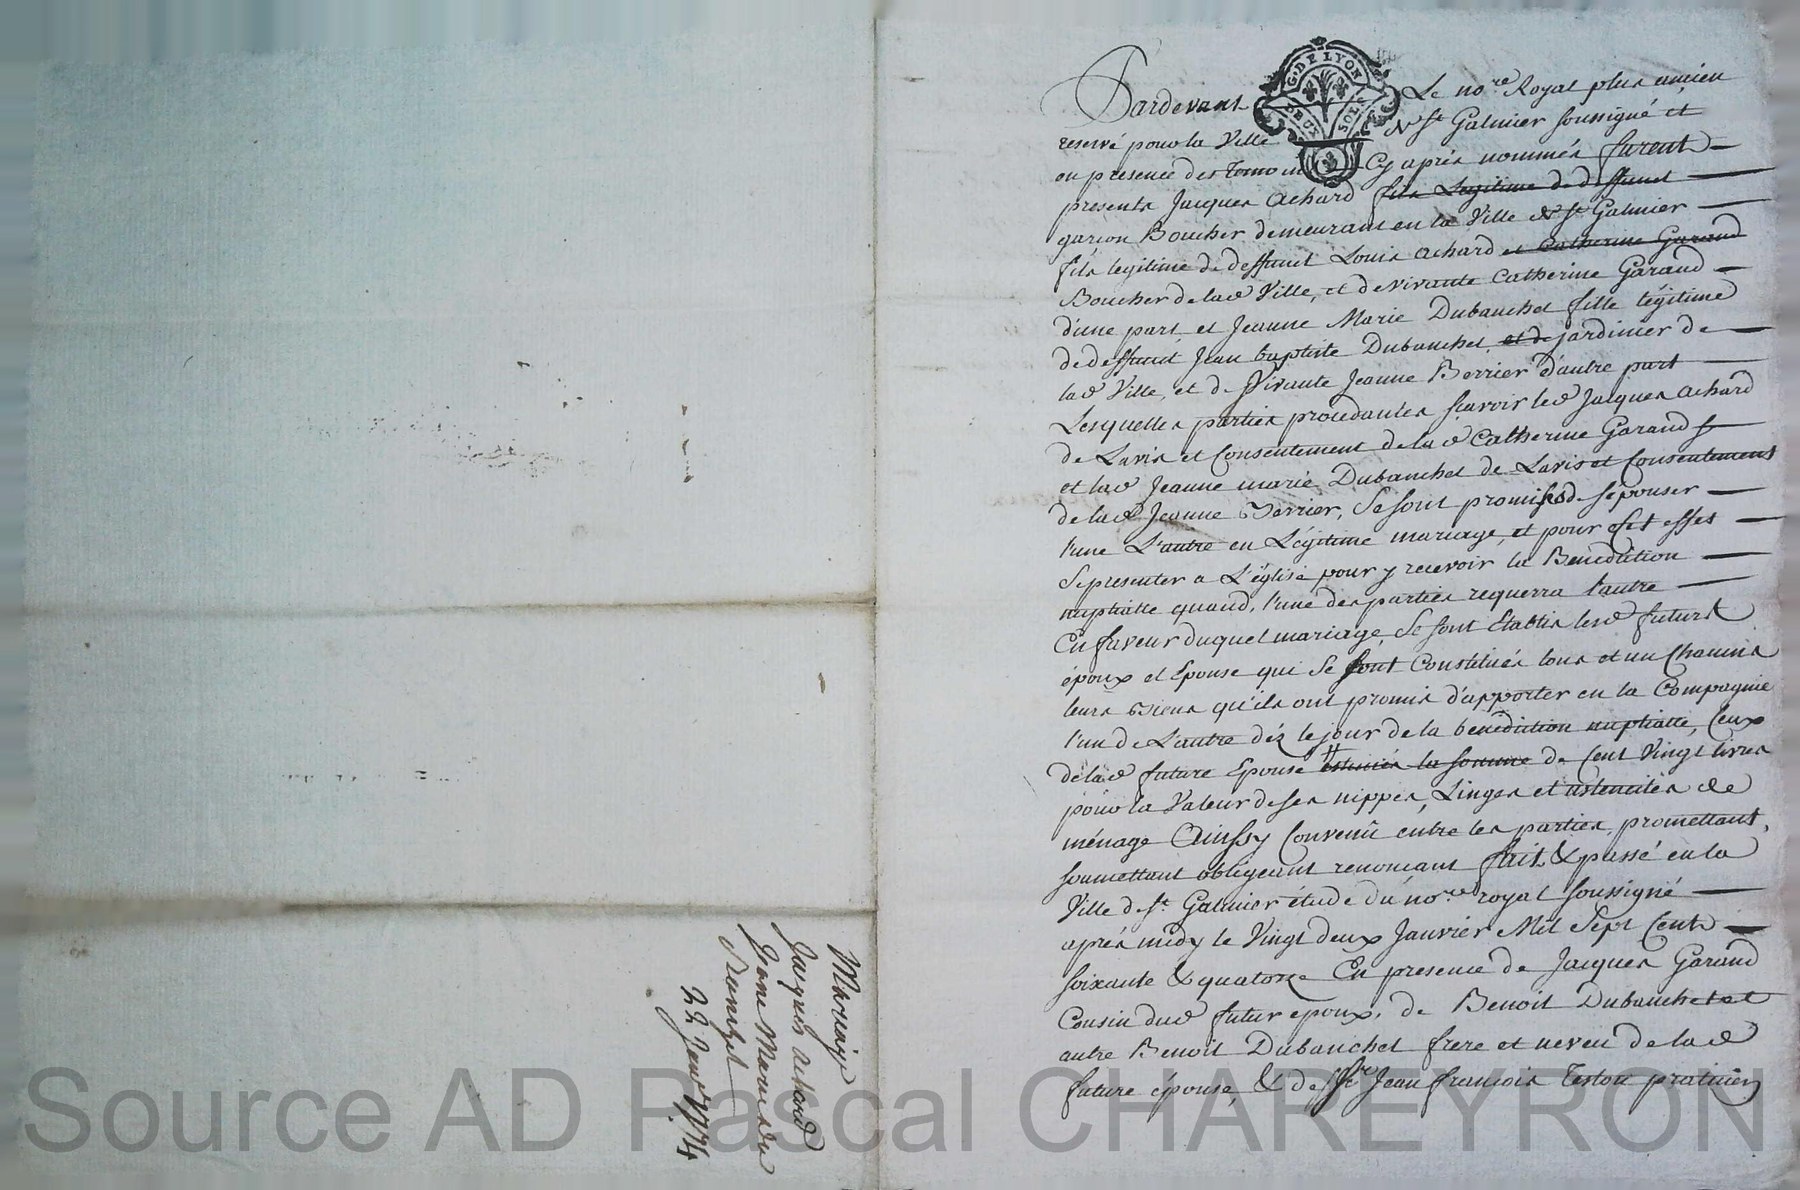 Mariage
Jacques Achard
Jane Marie du
Banchet
22 Janv 1774
G. DE LYON
DEUX SOLS
Pardevant Le no.re Royal plus ancien
reservé pour la Ville de St Galmier soussigné et
en presence des temoins Cy après nommés furent
presents Jacques Achard fils Legitime de deffunct
garçon Boucher demeurant en la Ville de St Galmier
fils legitime de deffunct Louis Achard et Catherine Garand
Boucher de lad Ville, et de vivante Catherine Garand
d'une part, et Jeanne Marie Dubanchet fille légitime
de deffunct Jean baptiste Dubanchet, et de jardinier de
lad Ville, et de vivante Jeanne Berrier d'autre part
Lesquelles parties procedantes scavoir led Jacques Achard
de Lavis et Consentement de lad Catherine Garand
et lad Jeanne marie Dubanchet de Lavis et Consentement
de lad Jeanne Berrier, Se sont promis de sépouser
l'une L'autre en Légitime mariage, et pour cet effet
Se presenter a L'église pour y recevoir la Benediction
nuptialle quand l'une des parties requerra l'autre
En faveur duquel mariage, Se sont Etablis lesd futurs
époux et Epouse qui Se sont Constitués tous et un Chacuns
leurs Biens qu'ils ont promis d'apporter en la Compagnie
l'un de L'autre déz le jour de la benediction nuptialle, Ceux
de lad future Epouse estimés la somme de Cent Vingt livres
pour la Valeur de ses nippes, Linges et ustenciles de
ménage Ainssy Convenû entre les parties, promettant,
soumettant obligeant renoncant fait & passé en la
Ville de St. Galmier étude du no.re royal soussigné
après midy le Vingt deux Janvier Mil Sept Cent
soixante & quatorze En presence de Jacques Garand
Cousin dud futur epoux, de Benoit Dubanchet et
autre Benoit Dubanchet frere et neveu de lad
future épouse, & de Jean francois Teston praticien
Source AD Pascal CHAREYRON